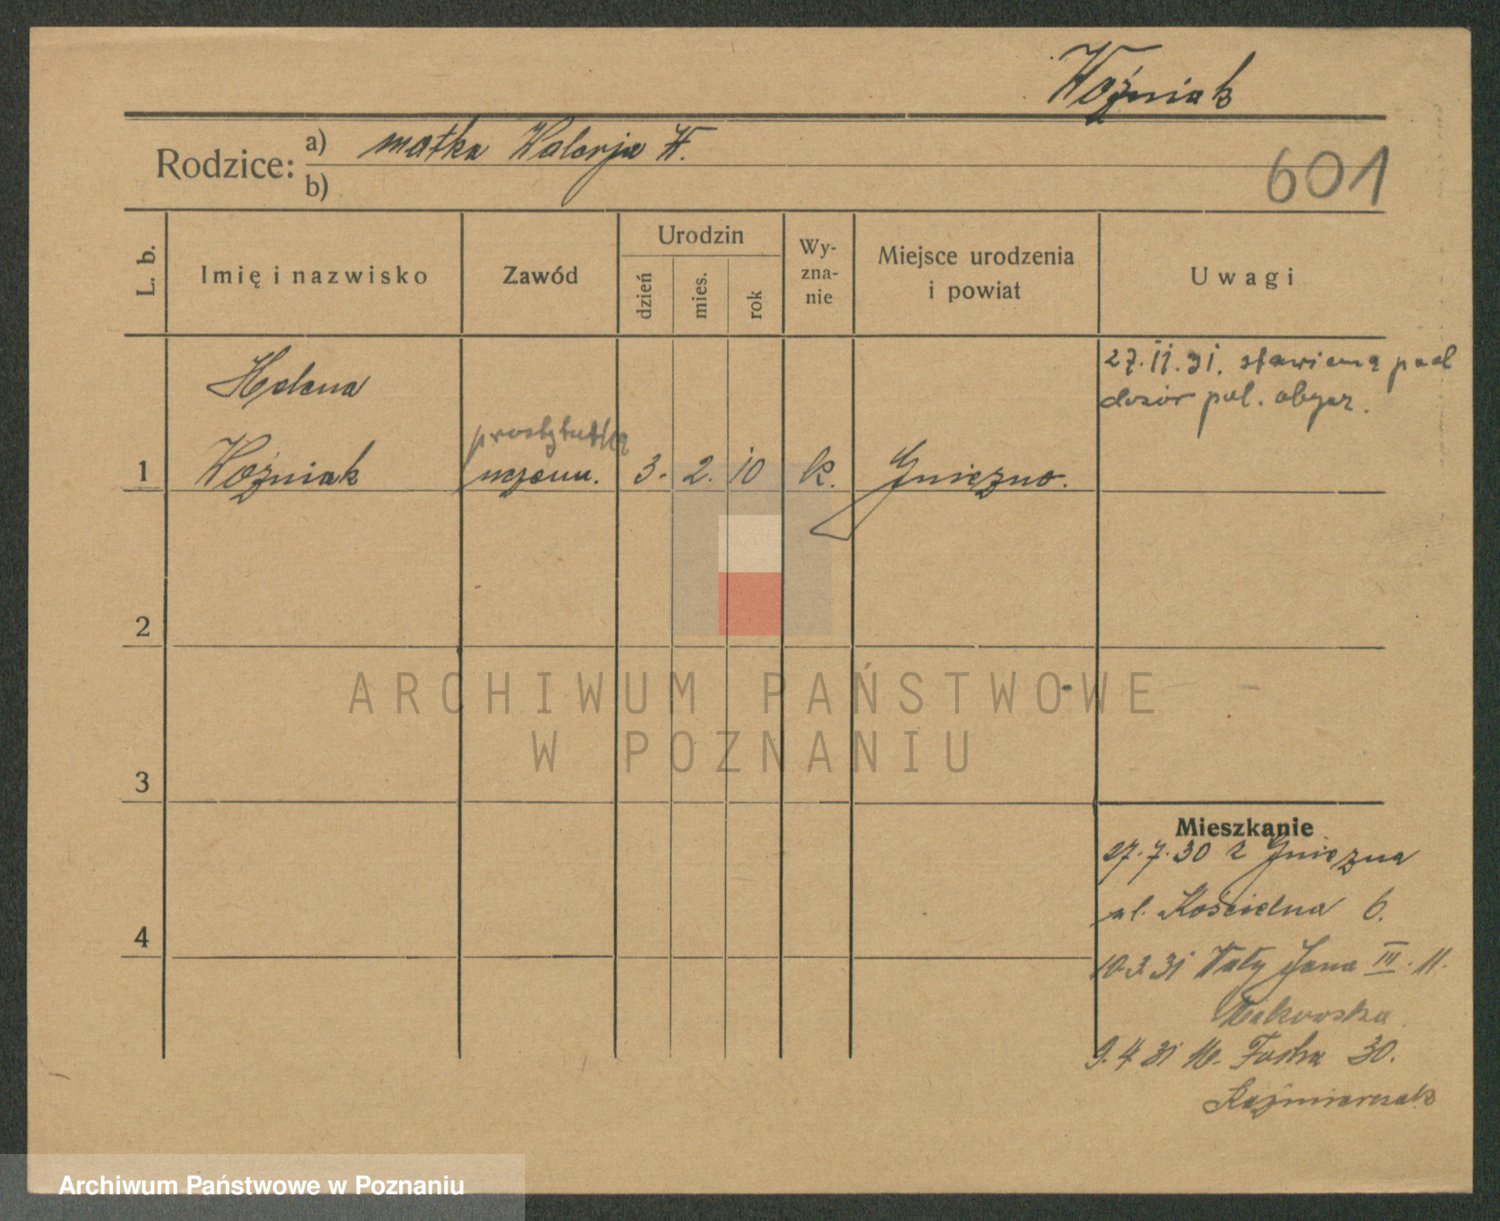 Woźniak
Rodzice: a) matka Walerja W.
b)
601
L. b. Imię i nazwisko Zawód Urodzin dzień mies. rok Wy-zna-nie Miejsce urodzenia i powiat Uwagi
27.II.31. stawiona pod
dozór pol. obycz.
Helena
prostytutka
1 Woźniak 3. 2. 10 k. Gniezno.
2
ARCHIWUM PAŃSTWOWE
W POZNANIU
3
Mieszkanie
27.7.30 z Gniezna
ul. Kościelna 6.
4
10.3.31 Wały Jana III. 11.
9.4.31 M. Focha 30.
Kaźmierczak
Archiwum Państwowe w Poznaniu